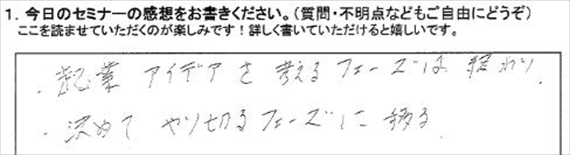 1. 今日のセミナーの感想をお書きください。(質問・不明点などもご自由にどうぞ)
ここを読ませていただくのが楽しみです!詳しく書いていただけると嬉しいです。
・起業アイデアを考えるフェーズは終わり
・決めてやり切るフェーズに移る